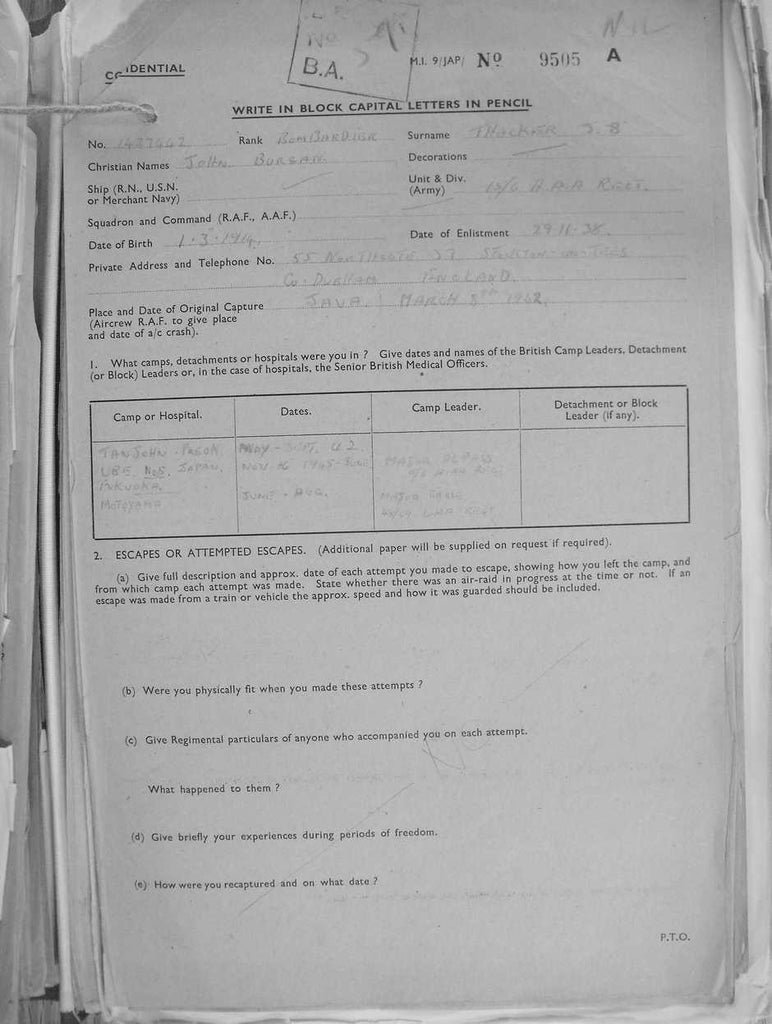 NIL
B.A.
M.I. 9/JAP/ Nº 9505 A
IDENTIAL
WRITE IN BLOCK CAPITAL LETTERS IN PENCIL
No. Rank BOMBARDIER Surname J. B
Christian Names JOHN
Decorations
Ship (R.N., U.S.N.
or Merchant Navy)
Unit & Div.
(Army) A.A REGT.
Squadron and Command (R.A.F., A.A.F.)
Date of Birth 1·3·1914. Date of Enlistment 29·11·38.
Private Address and Telephone No. 55 STOCKTON-ON-TEES
CO. DURHAM ENGLAND.
Place and Date of Original Capture JAVA. MARCH 8TH 1942.
(Aircrew R.A.F. to give place
and date of a/c crash).
1. What camps, detachments or hospitals were you in ? Give dates and names of the British Camp Leaders, Detachment
(or Block) Leaders or, in the case of hospitals, the Senior British Medical Officers.
Camp or Hospital. Dates. Camp Leader. Detachment or Block
Leader (if any).
MAY - SEPT. 42
UBE. No5. JAPAN. NOV MAJOR
JUNE - AUG. MAJOR
MOTOYAMA
2. ESCAPES OR ATTEMPTED ESCAPES. (Additional paper will be supplied on request if required).
(a) Give full description and approx. date of each attempt you made to escape, showing how you left the camp, and
from which camp each attempt was made. State whether there was an air-raid in progress at the time or not. If an
escape was made from a train or vehicle the approx. speed and how it was guarded should be included.
(b) Were you physically fit when you made these attempts ?
(c) Give Regimental particulars of anyone who accompanied you on each attempt.
What happened to them ?
(d) Give briefly your experiences during periods of freedom.
(e) How were you recaptured and on what date ?
P.T.O.